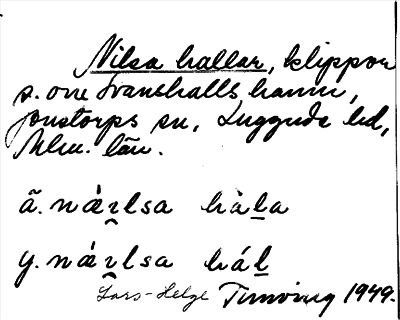 Nilsa hallar, klippor
s. om Svanshalls hamn,
Jonstorps sn, Luggude hd,
Mlm. län.
ä. nàɪlsa hàla
y. náɪlsa hál
Lars-Helge Tunving 1949.